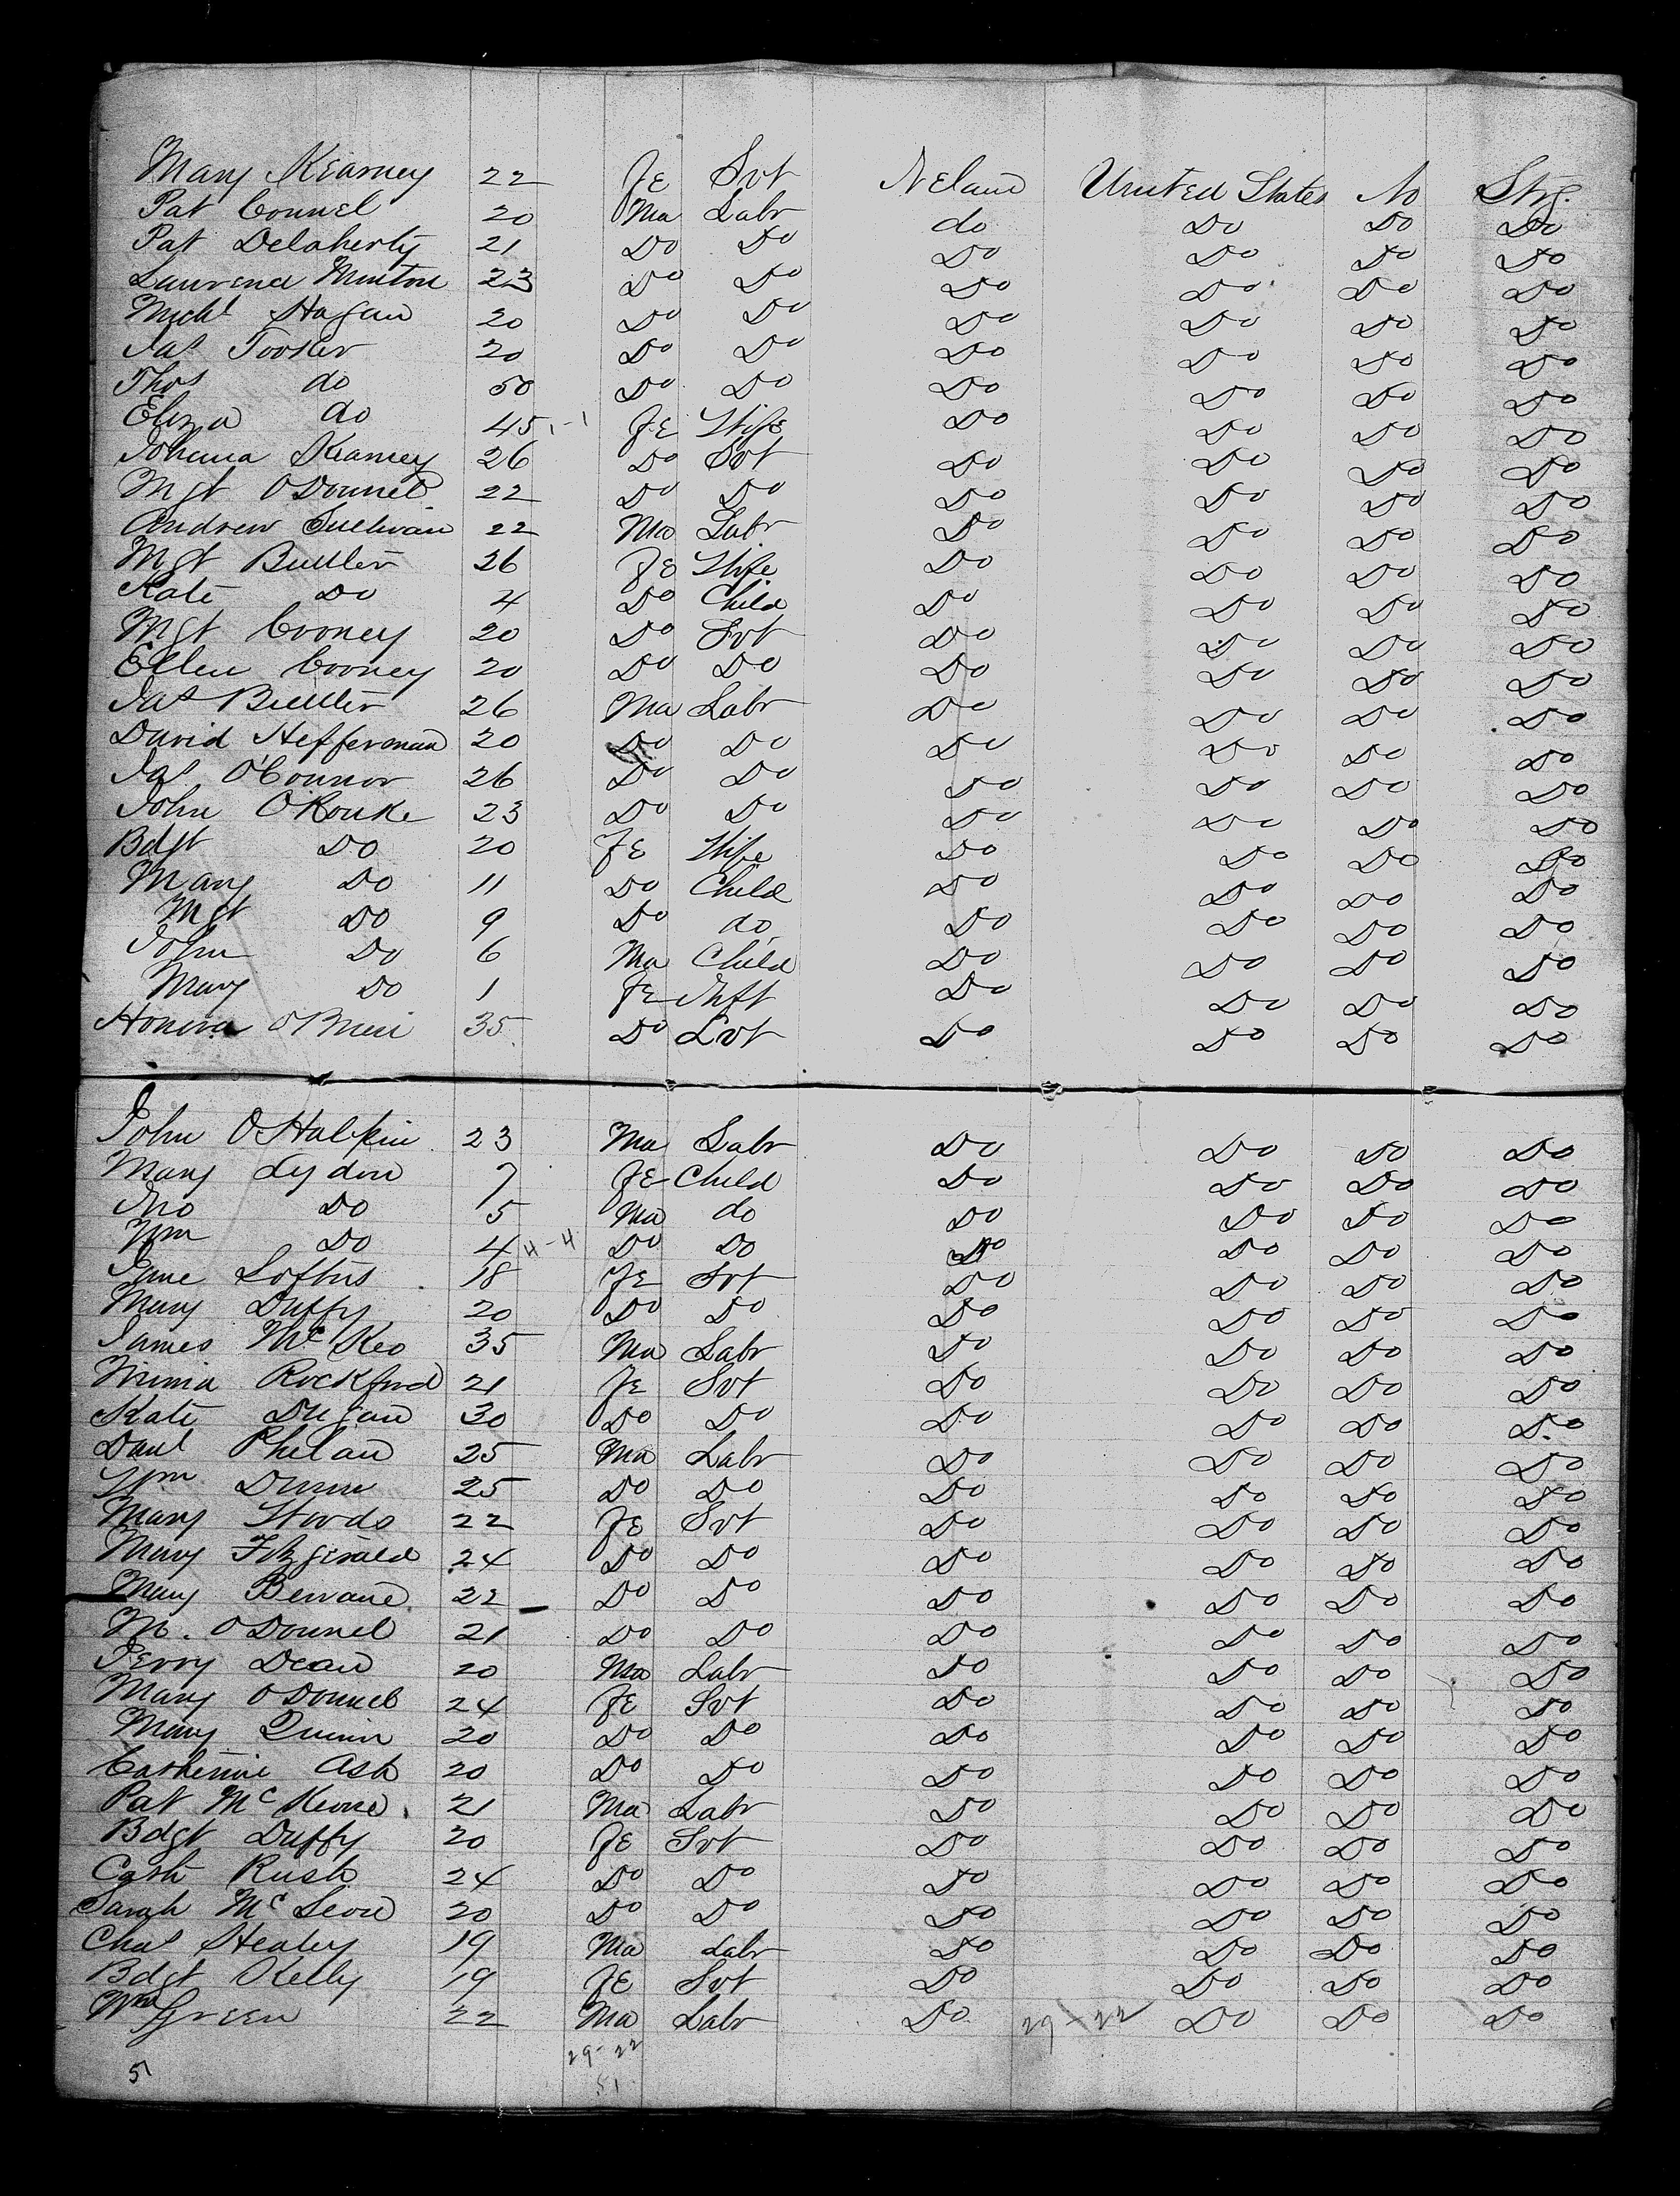 Mary Kearney 22 Fe Svt Ireland United States No Strg.
Pat Connel 20 Ma Labr do Do Do Do
Pat Delaherty 21 Do Do Do Do Do Do
Laurence Minton 23 Do Do Do Do Do Do
Michl Hagan 20 Do Do Do Do Do Do
Jas Tooker 20 Do Do Do Do Do Do
Thos do 50 Do Do Do Do Do Do
Eliza do 45 1-1 Fe Wife Do Do Do Do
Johana Kearney 26 Do Svt Do Do Do Do
Mgt O'Donnel 22 Do Do Do Do Do Do
Andrew Sullivan 22 Ma Labr Do Do Do Do
Mgt Butler 26 Fe Wife Do Do Do Do
Kate Do 4 Do Child Do Do Do Do
Mgt Cooney 20 Do Svt Do Do Do Do
Ellen Cooney 20 Do Do Do Do Do Do
Jas Butler 26 Ma Labr Do Do Do Do
David Heffernan 20 Do Do Do Do Do Do
Jas O'Connor 26 Do Do Do Do Do Do
John O'Rourke 23 Do Do Do Do Do Do
Bdgt Do 20 Fe Wife Do Do Do Do
Mary Do 11 Do Child Do Do Do Do
Mgt Do 9 Do do Do Do Do Do
John Do 6 Ma Child Do Do Do Do
Mary Do 1 Fe Inft Do Do Do Do
Honora O'Brien 35 Do Svt Do Do Do Do
John O'Halpin 23 Ma Labr Do Do Do Do
Mary Lydon 7 Fe Child Do Do Do Do
Jno Do 5 Ma do Do Do Do Do
Wm Do 4 4-4 Do Do Do Do Do Do
Jane Loftus 18 Fe Svt Do Do Do Do
Mary Duffy 20 Do Do Do Do Do Do
James McKeo 35 Ma Labr Do Do Do Do
Rockford 21 Fe Svt Do Do Do Do
Kate Dugan 30 Do Do Do Do Do Do
Danl Phelan 25 Ma Labr Do Do Do Do
Wm Dunn 25 Do Do Do Do Do Do
Mary Woods 22 Fe Svt Do Do Do Do
Mary Fitzgerald 24 Do Do Do Do Do Do
Mary 22 Do Do Do Do Do Do
M. O'Donnel 21 Do Do Do Do Do Do
Jerry Dean 20 Ma Labr Do Do Do Do
Mary O'Donnel 24 Fe Svt Do Do Do Do
Mary Quinn 20 Do Do Do Do Do Do
Catherine Ash 20 Do Do Do Do Do Do
Pat McKeone 21 Ma Labr Do Do Do Do
Bdgt Duffy 20 Fe Svt Do Do Do Do
Cath Rush 24 Do Do Do Do Do Do
Sarah McLeon 20 Do Do Do Do Do Do
Chas Healey 19 Ma Labr Do Do Do Do
Bdgt Kelly 19 Fe Svt Do Do Do Do
Wm Green 22 Ma Labr Do 29-22 Do Do Do
29-22
5 51